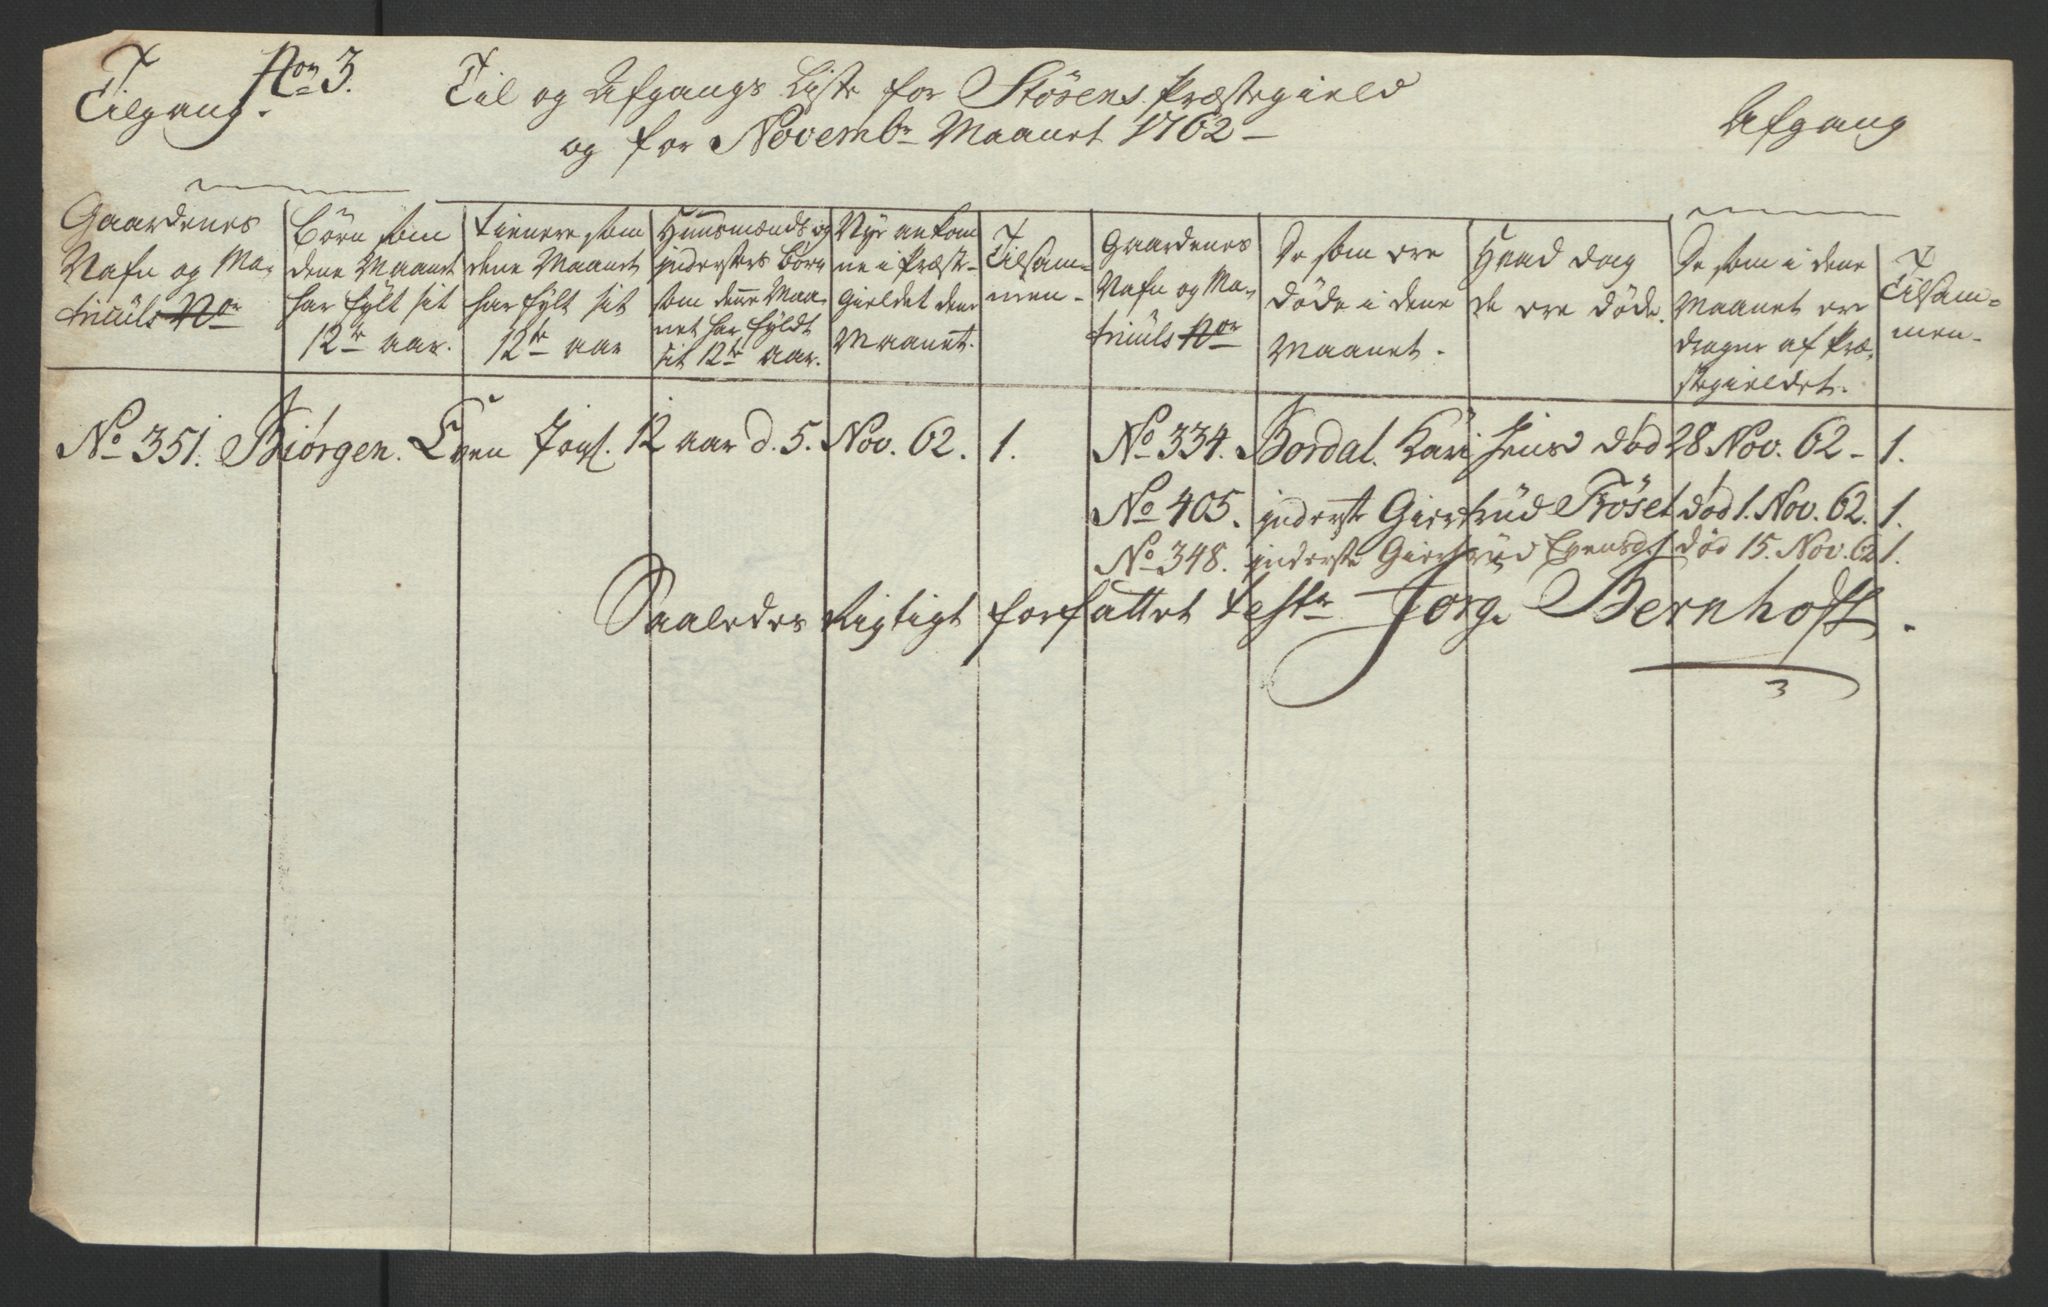 Tilgang.
Non 3.
Til og Afgangs Liste for Størens Præstegield
og for Novembr Maanet 1762 –
Afgang
Gaardenes
Nafn og Ma-
triculs Nor
Børn som
dene Maanet
har fylt sit
12te aar.
Tienere som
dene Maanet
har fylt sit
12te aar
Huusmænds og
indersters Børn
som denne Maa-
net har fyldt
sit 12te aar.
Nye ankom
ne i Præste-
gieldet dene
Maanet.
Tilsam-
men.
Gaardenes
Nafn og Ma-
triculs Nor
De som ere
døde i dene
Maanet.
Hvad dag
de ere døde.
De som i dene
Maanet er
dragne af Præ-
stegieldet.
Tilsam-
men.
No 351. Biørgen. Even 12 aar d. 5. Nov. 62. 1.
No 334. Bordal. Kari Jensd død 28 Nov. 62 – 1.
No 405. inderste Giertrüd Frøset død 1. Nov. 62. 1.
No 348. inderste Giertrüd Evensd død 15. Nov. 62 1.
Saaledes Rigtigt forfattet Testr Jørg. Bernhoft.